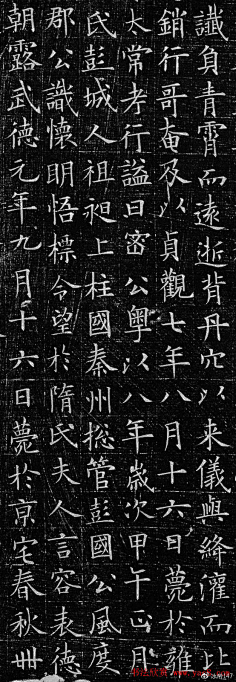 讖負青霄而遠逝背丹穴以来儀與絳灌而比
銷行哥奄及以貞觀七年八月十六日薨於雍
太常考行諡曰密公粤以八年歲次甲午正月
氏彭城人祖昶上柱國秦州揔管彭國公風度
郡公識懷明悟標令望於隋氏夫人言容表德
朝露武德元年九月十六日薨於亰宅春秋卌